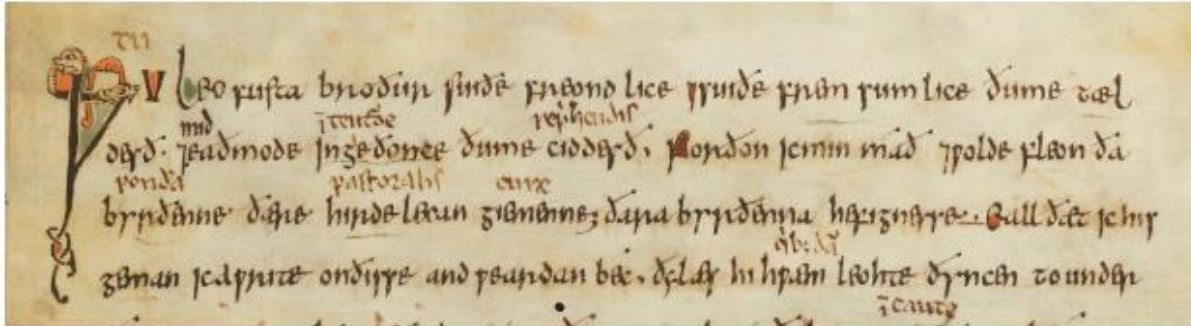 tu
ÞU leofusta broður suiðe freond lice ⁊suiðe frem sumlice ðume tæl
mid rep̄hendis
desð. ⁊eaðmode Ingeðonce ðume ciddesð. Forðon icmin mað ⁊wolde fleon ða
pondera pastoralis cure
byrðenne ðære hirde lecan giemenne; ðara byrðenna hefignesse. Eall ðæt ic his
geman icawrite onðisse andweardan bec. ðylæs hi hwæm leohte ðyncen tounder
ī caute